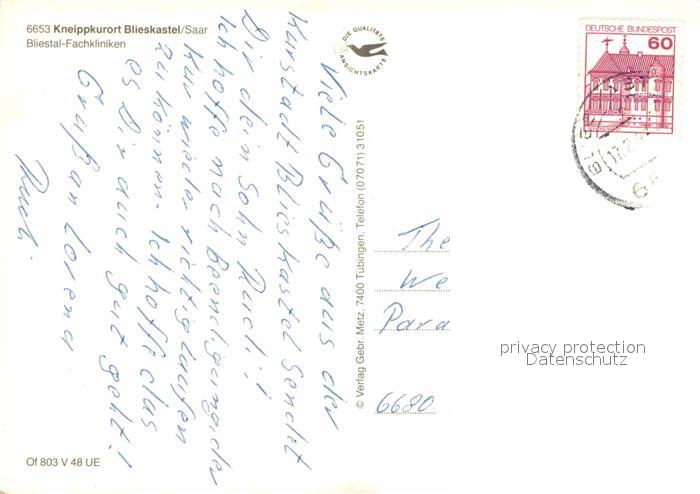 6653 Kneippkurort Blieskastel/Saar
Bliestal-Fachkliniken
DIE QUALITÄTS
ANSICHTSKARTE
DEUTSCHE BUNDESPOST
60
Viele Grüße aus der
Kurstadt Blieskastel sendet
Dir dein Sohn Rudi!
Ich hoffe nach Beendigung der
Kur wieder richtig laufen
zu können. Ich hoffe das
es Dir auch gut geht!
Gruß an Lorena
Rudi.
© Verlag Gebr. Metz, 7400 Tübingen, Telefon (07071) 31051
The
We
Para
6680
privacy protection
Datenschutz
Of 803 V 48 UE